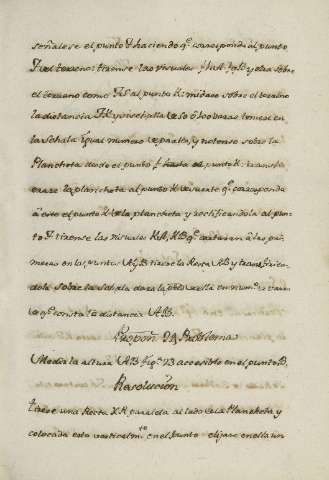 señalese el punto haciendo qe. corresponda al punto
del terreno: tirense las visuales y otra sobre
el terreno como al punto K: midase sobre el terreno
la distancia y si se halla de 100 varas tomese en
la Schala igual numero de partes, y notense sobre la
Plancheta desde el punto hasta el punto K: transfie
rase la plancheta al punto K de suerte qe. corresponda
à este el punto K de la plancheta y rectificandola al pun-
to tirense las visuales KA, KB qe. cortaran à las pri-
meras en los puntos A y B: tirese la Recta AB y
sobre la Schala dara la de ella en num.o de varas
de qe. consta la distancia AB.
Propon. 2a. Problema
Medir la altura AB figa. 23 accesible en el punto B.
Resolucion
Tirese una Recta XR paralela al lado de la Plancheta y
colocada esta verticalmte. en el punto elijase en ella un